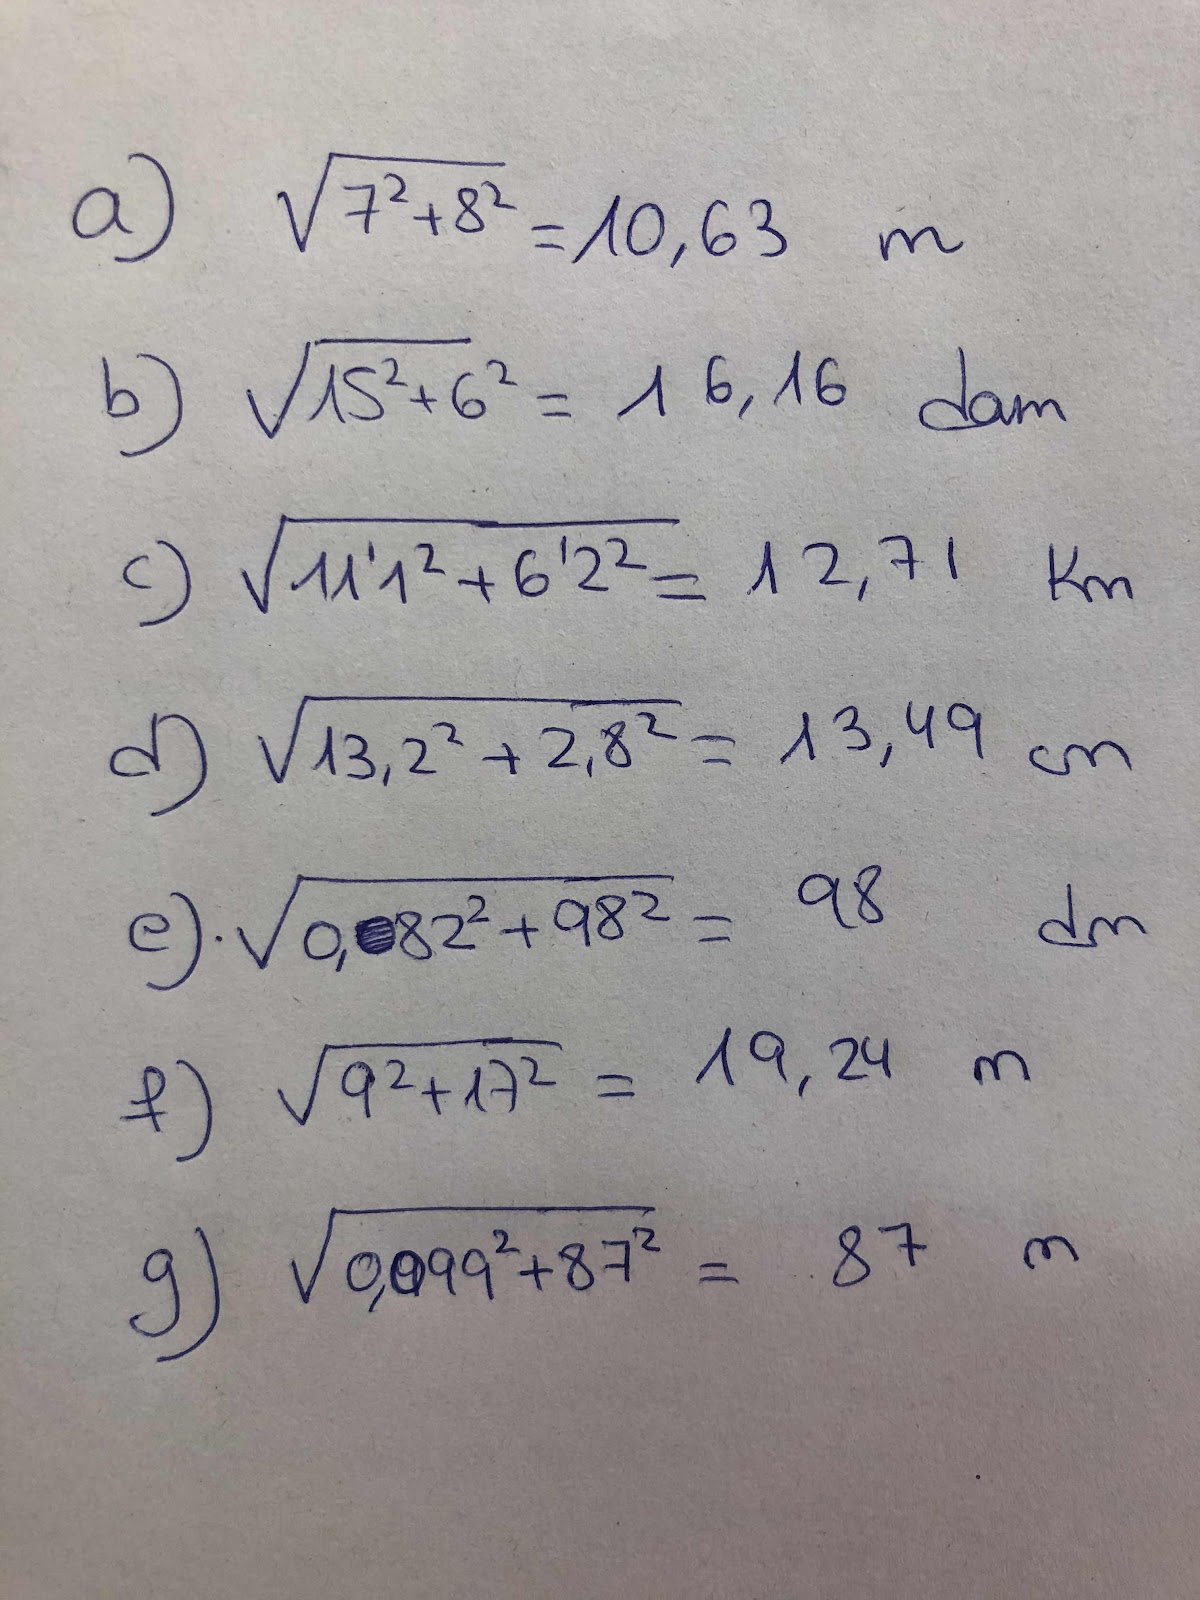 a) √7²+8² = 10,63 m
b) √15²+6² = 16,16 dam
c) √11'1²+6'2² = 12,71 Km
d) √13,2²+2,8² = 13,49 cm
e) √0,82²+98² = 98 dm
f) √9²+17² = 19,24 m
g) √0,099²+87² = 87 m